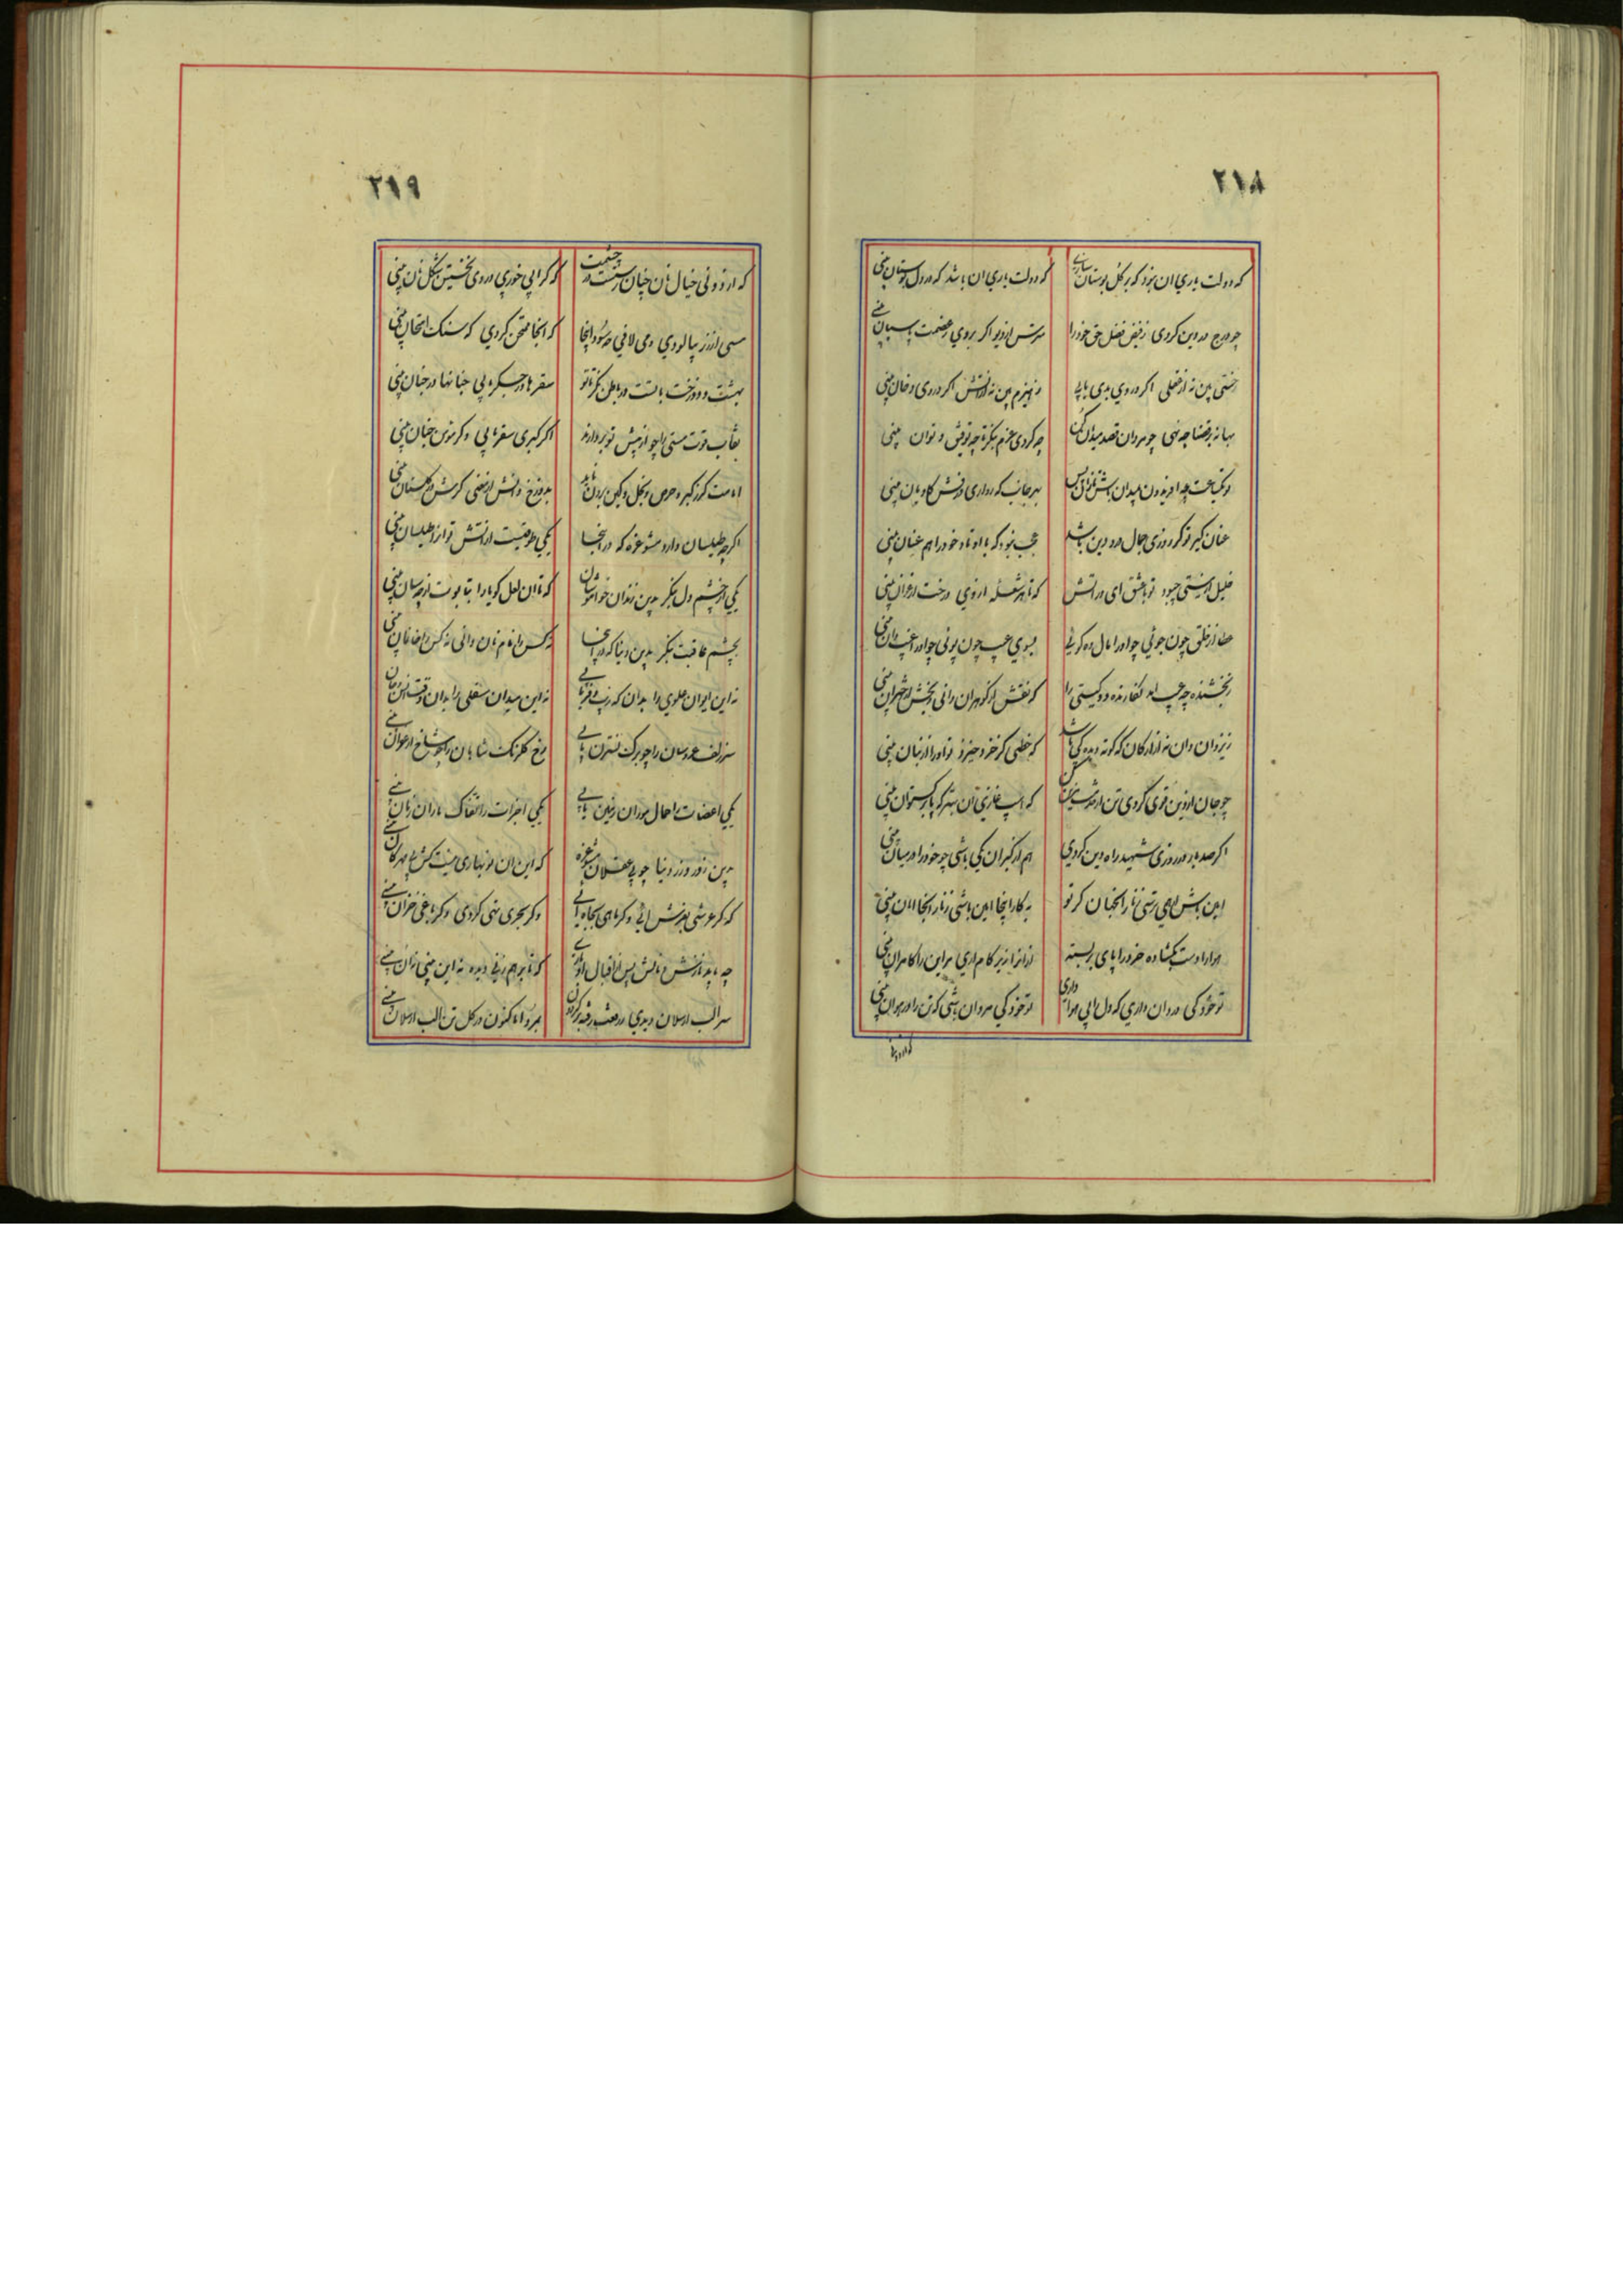 ٢١٨
که دولت یاری ان نبود که برکل بوستان سازی که دولت یاری ان باشد که در دل بوستان بینی
چو درج در دین کردی ز فیض فضل حق خود را مترس از دیو اکر بروی ز عصمت پاسبان بینی
ز بخشی بین نه از نقلی اکر در وی بدی یابی ز هیزم بین نه ز اتش اکر در وی دخان بینی
بهانه بر قضا چه نهی چو مردان قصد میدان کن چه کردی عزم بنکر تا چه توفیق و توان بینی
تو یکساعت چو افریدون بمیدان باش تا زان پس بهر جانب که رو اری درفش کاویان بینی
عنان کیر تو کر روزی جمال درد دین باشد عجب نبود که با او تاد خود را هم عنان بینی
خلیل ار نیستی چبود تو با عشق ای در اتش که تا هر شعله از وی درخت ارغوان بینی
عطا از خلق چون جوئی چو او را مال ده کوئی بسوی عیب چون پوئی چو او را غیب دان بینی
ز بخشنده چه عیب اید نکارنده دو کیتی را که نقش از کوهران دانی و بخش از اختران بینی
ز یزدان دان نه از ارکان که کوته دیدکی باشد که خطی کز خرد خیزد تو او را از بنان بینی
چو جان از دین قوی کردی تن از خدمت مزین کن که اسب غازی ان بهتر که با برکستوان بینی
اکر صد بار در روزی شهید راه دین کردی هم از کبران یکی باشی چو خود را در میان بینی
امین باش ار همی ترسی ز نار انجهان کر تو بکار اینجا امین باشی ز نار انجا امان بینی
هوا را دست بکشاده خرد را پای بر بسته از انرا زیر کام اری مر این را کامران بینی
تو خود کی درد ان داری که دل از بی هوا داری تو خود کی مرد ان باشی که تن را در هوان بینی
که از دونی
٢١٩
که از دونی خیال نان چنان رستست در چشمت که کر ابی خوری در وی نخستین شکل نان بینی
مسی از زر بیالودی و می لافی چه سود اینجا که انجا ممتحن کردی که سنک امتحان بینی
بهشت و دوزخت با تست در باطن نکر تا تو سقرها در جکر یابی جنانها در جنان بینی
نقاب قوت مستی را چو از پیش تو بردارند اکر کبری سقر یابی وکر مؤمن جنان بینی
امامت کر ز کبر و حرص و بخل و کین برون ناید بدوزخ دانش از معنی کرش در کلستان بینی
اکر چه طیلسان دارد مشو غره که در انجا یکی طوقیست از اتش تو انرا طیلسان بینی
یکی از چشم دل بنکر بدین زندان خاموشان که تا ان لعل کویا را بتابوت از چه سان بینی
بچشم عافیت بنکر بدین دنیا که در انجا نه کس را نام نان دانی نه کس را خانمان بینی
نه این ایوان علوی را بدان که زیب و فر یابی نه این میدان سفلی را بدان وقت انس و جان بینی
سر زلف عروسان را چو برک نسترن یابی رخ کلرنک شاهان را چو شاخ ارغوان بینی
یکی اعضات را حمال موران زمین یابی یکی اجزات را نقاک باران زمان بینی
بدین زور و زر دنیا چو بی عقلان مشو غره که این ان نوبهاری نیست کش بی مهرکان بینی
که کر عرشی بفرش ائی وکر ماهی بچاه ائی وکر بحری تهی کردی وکر باغی خزان بینی
چه باید نازش و نالش پس از اقبال ادباری که تا بر هم زنی دیده نه این بینی نه ان بینی
سر الب ارسلان دیدی ز رفعت رفته بر کردون بمرو اما کنون در کل تن الب ارسلان بینی